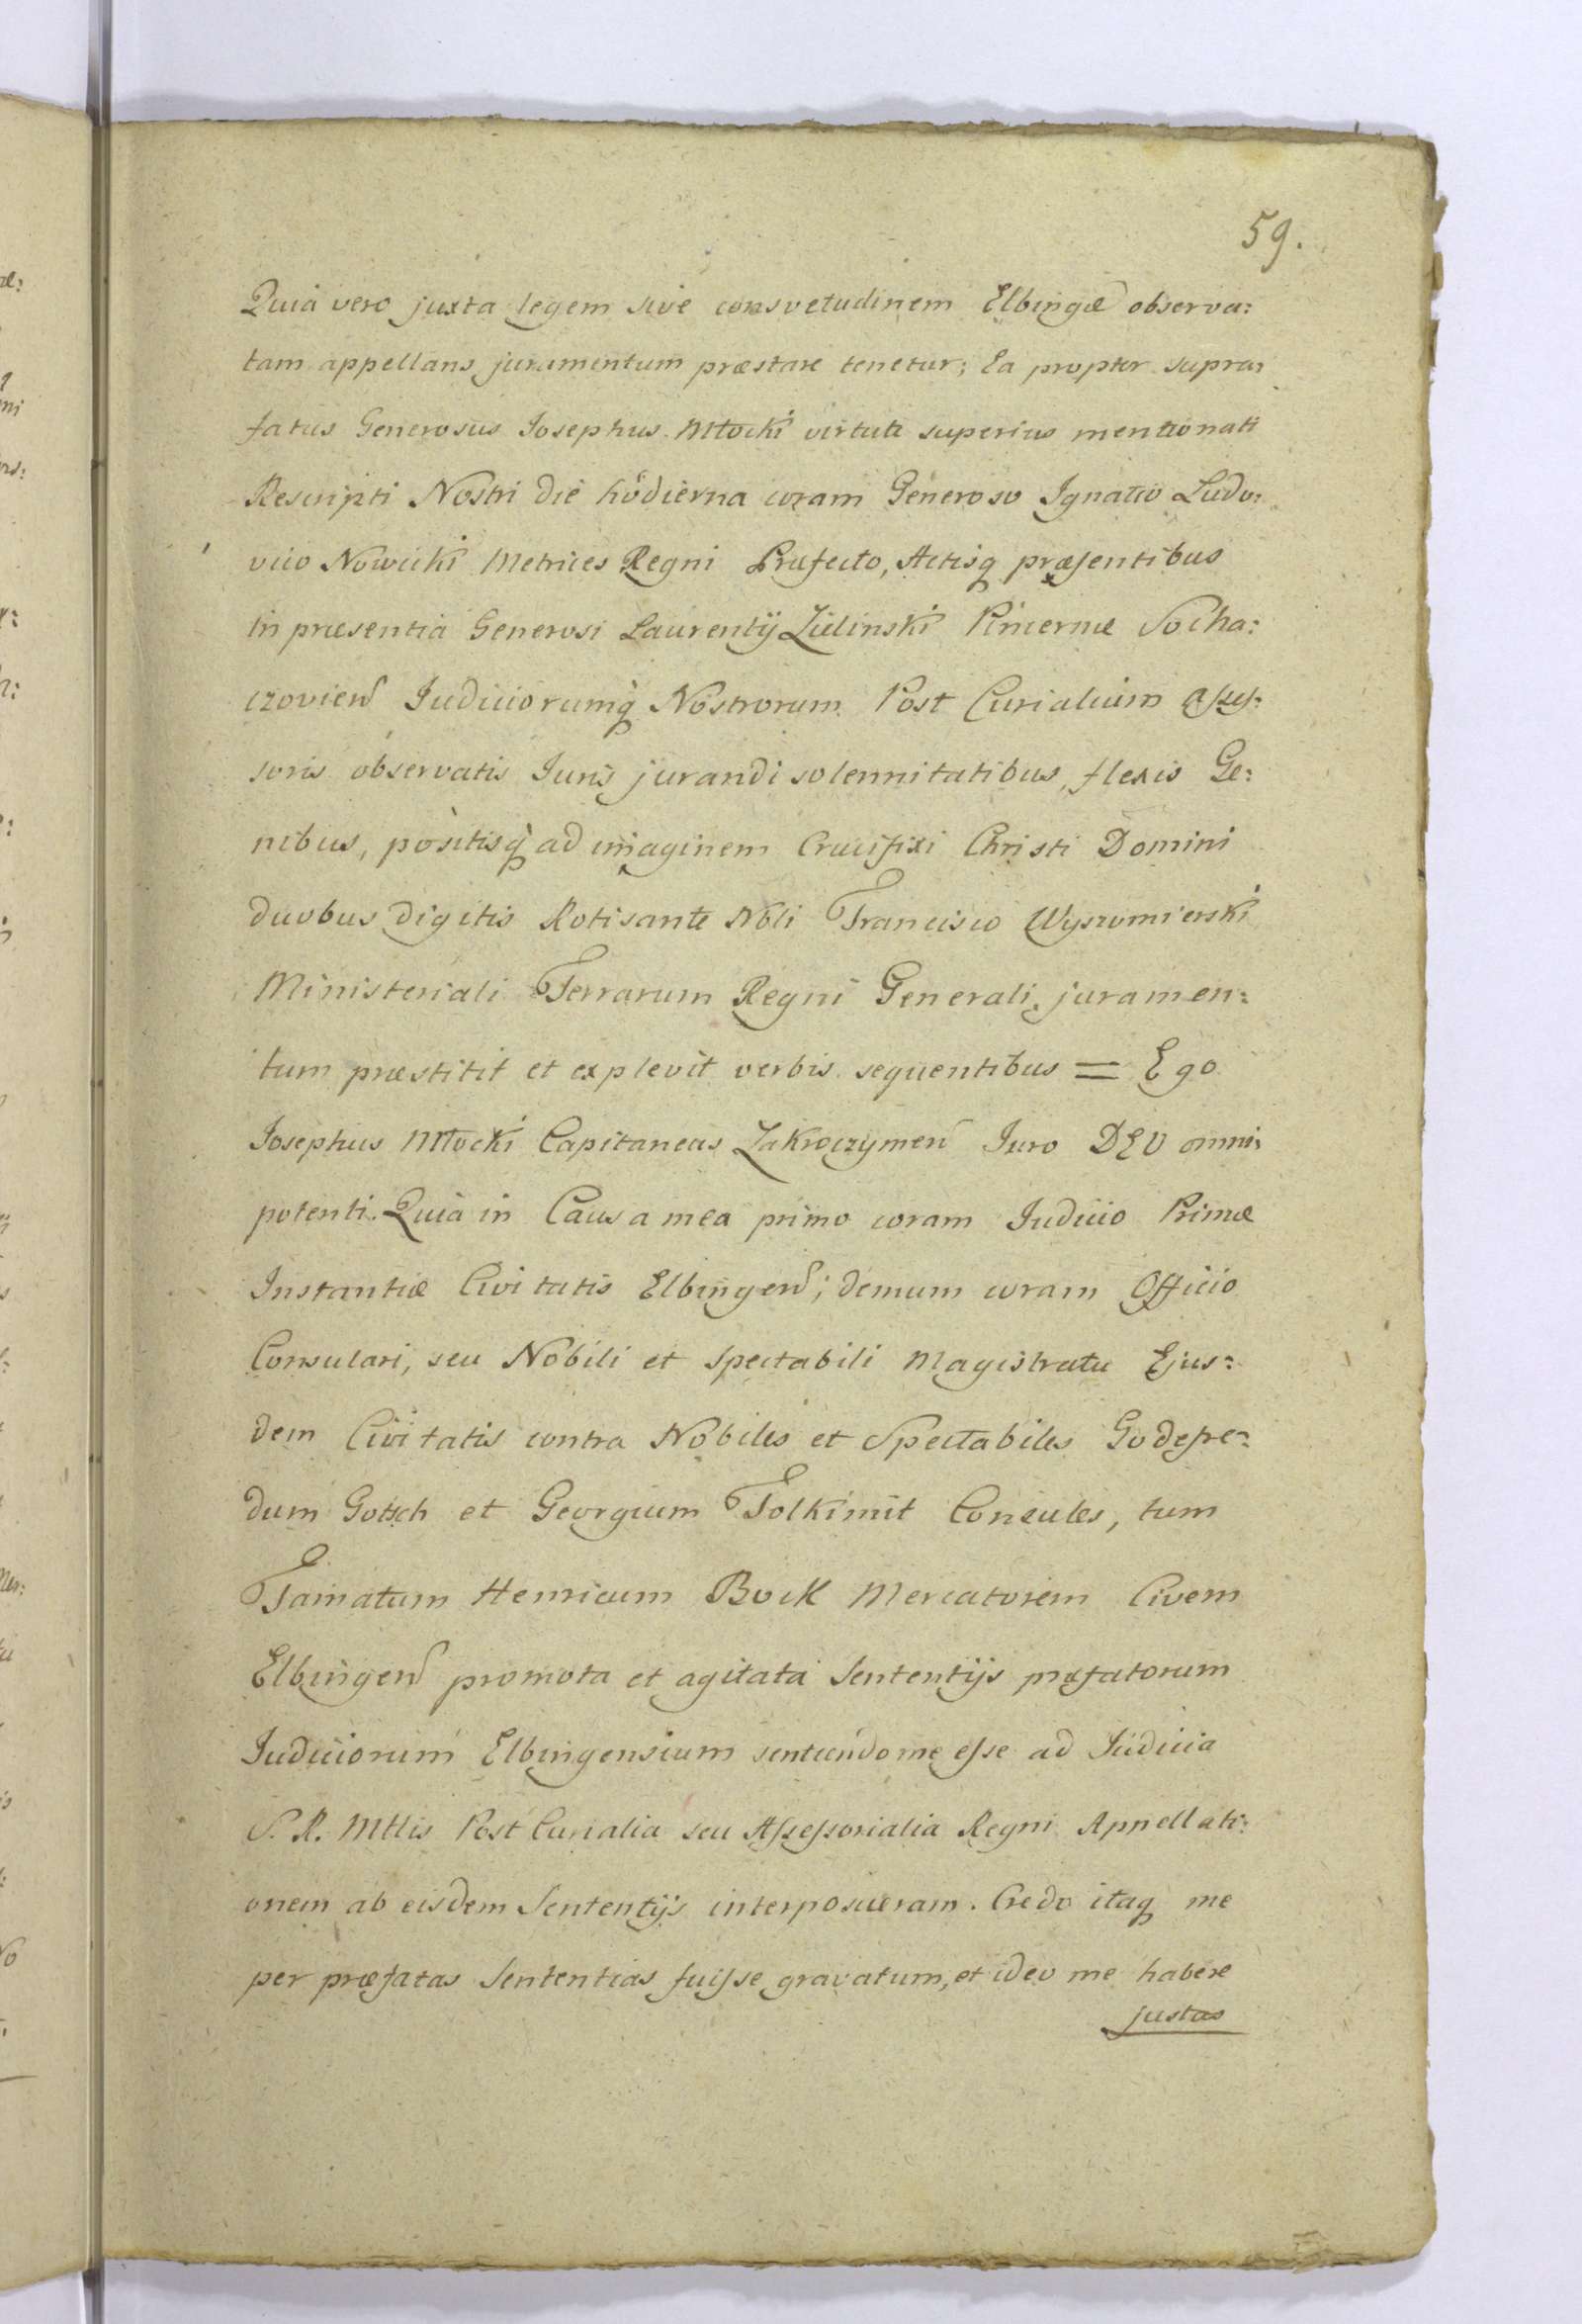 59.
Quia vero juxta legem sive consvetudinem Elbingæ observa:
tam appellans juramentum præstare tenetur; Ea propter supra:
fatus Generosus Josephus Młocki virtute superius mentionati
Rescripti Nostri die hodierna coram Generoso Ignatio Ludo:
vico Nowicki Metrices Regni Præfecto, Actisq præsentibus
in præsentia Generosi Laurentij Zielinski Pincernæ Socha:
czovien Judiciorumq Nostrorum Post Curialium Asses:
soris observatis Juris jurandi solennitatibus, flexis Ge:
nibus, positisq ad imaginem Crucifixi Christi Domini
duobus digitis Rotisante Nbli Francisco Wyszomierski
Ministeriali Terrarum Regni Generali, juramen:
tum præstitit et explevit verbis sequentibus = Ego
Josephus Młocki Capitaneus Zakroczymen Juro DEO omni:
potenti. Quia in Causa mea primo coram Judicio Primæ
Instantiæ Civitatis Elbingen; demum coram Officio
Consulari, seu Nobili et Spectabili Magistratu Ejus:
dem Civitatis contra Nobiles et Spectabiles Godefre:
dum Gotsch et Georgium Tolkimit Consules, tum
Famatum Henricum Bock Mercatorem Civem
Elbingen promota et agitata Sententijs præfatorum
Judiciorum Elbingensium sentiendo me esse ad Judicia
S. R. Mttis Post Curialia seu Assessorialia Regni Appellati:
onem ab eisdem Sententijs interposueram. Credo itaq me
per præfatas Sententias fuisse gravatum, et ideo me habere
justas